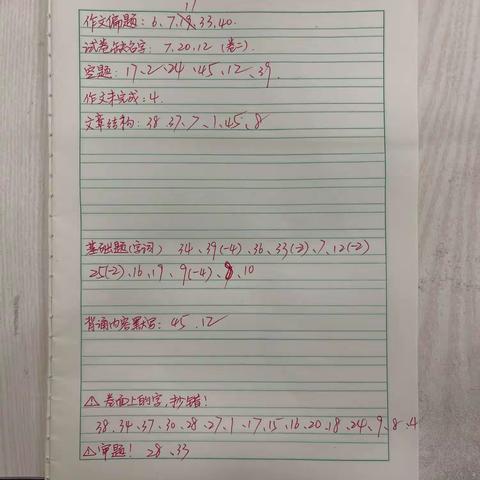 作文偏题：6、7、19、33、40.
试卷缺名字：7、20、12（卷二）.
空题：17、2、24、45、12、39.
作文未完成：4.
文章结构：38、37、7、1、45、8
基础题（字词） 34、39(-4)、36、33(-3)、7、12(-2)
25(-2)、16、19、9(-4)、8、10
背诵内容默写：45、12
⚠ 卷面上的字，抄错！
38、34、37、30、28、27、1、17、15、16、20、18、24、9、8、4
⚠审题！ 28、33